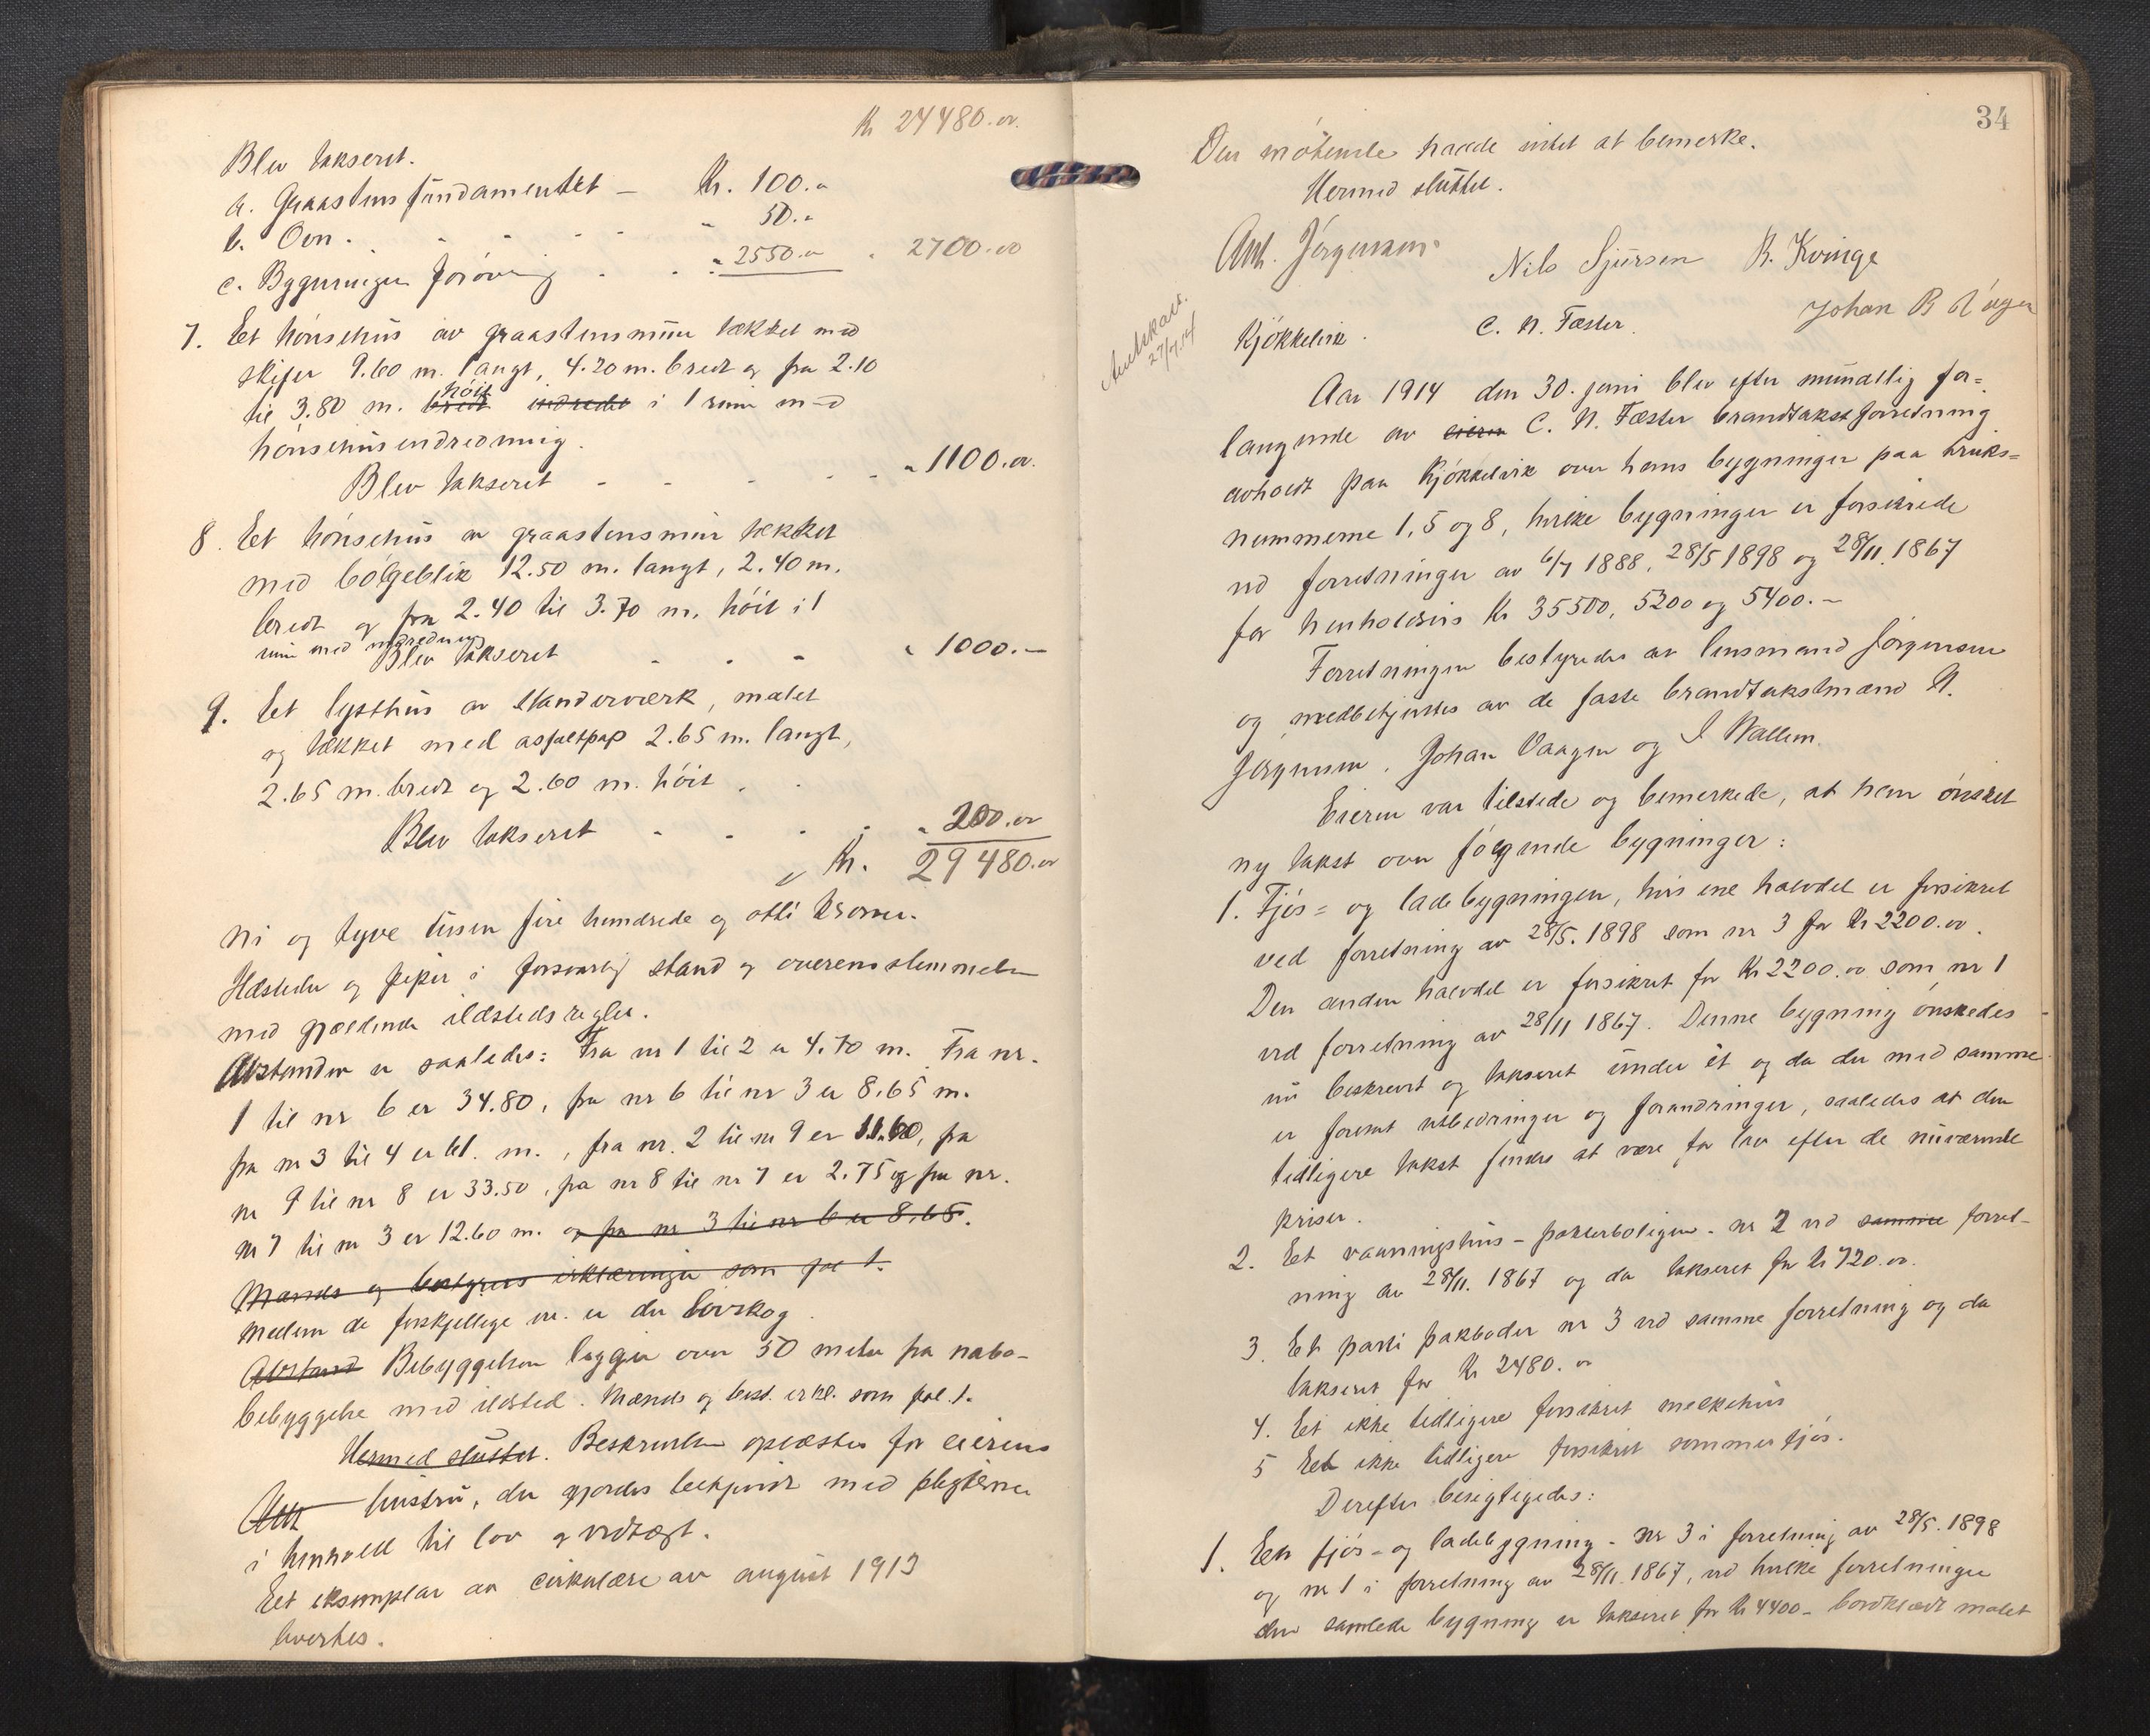 Kr 24480.oo
Blev takseret.
a. Graastensfundamentet - Kr. 100.„
b. Ovn. - - - - „ 50.„
c. Bygningen forøvrig - - „ 2550.„ „ 2700.oo
7. Et hønsehus av graastensmur tækket med
skifer 9.60 m. langt, 4.20 m. bredt og fra 2.10
til 3.80 m. bredt høit indredet i 1 rum med
hønsehusindredning.
Blev takseret - - - - - „ 1100.oo.
8. Et hønsehus av graastensmur tækket
med bølgeblik 12.50 m. langt, 2.40 m.
bredt og fra 2.40 til 3.70 m. høit i 1
rum med indredning
Blev takseret - - - „ 1000.-
9. Et lysthus av standerværk, malet
og tækket med asfaltpap 2.65 m. langt,
2.65 m. bredt og 2.60 m. høit . .
Blev takseret - - - - „ 200.oo
Kr. 29480.oo
Ni og tyve tusen fire hundrede og otti kroner.
Ildsteder og piper i forsvarlig stand og overensstemmelse
med gjældende ildstedsregler.
Avstanden er saaledes: Fra nr 1 til 2 er 4.70 m. Fra nr.
1 til nr 6 er 34.80, fra nr 6 til nr 3 er 8.65 m.
fra nr 3 til 4 er 61. m., fra nr. 2 til nr 9 er 11.60, fra
nr 9 til nr 8 er 33.50, fra nr 8 til nr 7 er 2.75 og fra nr.
nr 7 til nr 3 er 12.60 m. og fra nr 3 til nr 6 er 8.65.
Mænds og bestyrers erklæringer som fol 1.
Mellem de forskjellige nr. er der løvskog.
Avstand Bebyggelsen ligger over 50 meter fra nabo-
bebyggelse med ildsted. Mænds og best. erkl. som fol. 1.
Hermed sluttet. Beskrivelsen oplæstes for eierens
hustru, der gjordes bekjendt med pligterne
i henhold til lov og vedtægt.
Et eksemplar av cirkulære av august 1913
levertes.
34
Den møtende havde intet at bemerke.
Hermed sluttet.
Anh. Jørgensen
Nils Sjursen R. Kvinge
Johan B Vågen
27/7.14
Kjøkkelvik. C. N. Fæster.
Aar 1914 den 30. juni blev efter mundtlig for=
langende av eieren C. N. Fæster brandtakstforretning
avholdt paa Kjøkkelvik over hans bygninger paa bruks=
nummerne 1, 5 og 8, hvilke bygninger er forsikrede
ved forretninger av 6/7 1888, 28/5 1898 og 28/11. 1867
for henholdsvis Kr 35500, 5200 og 5400.-
Forretningen bestyredes av lensmand Jørgensen
og medbetjentes av de faste brandtakstmænd N.
Jørgensen, Johan Vaagen og I Wallem.
Eieren var tilstede og bemerkede, at han ønsket
ny takst over følgende bygninger:
1. Fjøs= og ladebygningen, hvis ene halvdel er forsikret
ved forretning av 28/5. 1898 som nr 3 for Kr 2200.oo.
Den anden halvdel er forsikret for Kr 2200.oo som nr 1
ved forretning av 28/11 1867. Denne bygning ønskedes
nu beskrevet og takseret under et og da der med samme
er foretat utbedringer og forandringer, saaledes at den
tidligere takst findes at være for lav efter de nuværende
priser.
2. Et vaaningshus - forpakterboligen - nr 2 ved samme forret-
ning av 28/11. 1867 og da takseret for Kr 720.oo.
3. Et parti pakboder nr 3 ved samme forretning og da
takseret for Kr 2480.oo
4. Et ikke tidligere forsikret melkehus
5 Et ikke tidligere forsikret sommerfjøs.
Derefter besigtigedes:
1. En fjøs- og ladebygning - nr 3 i forretning av 28/5. 1898
og nr 1 i forretning av 28/11. 1867, ved hvilke forretninger
den samlede bygning er takseret for Kr 4400- bordklædt malet